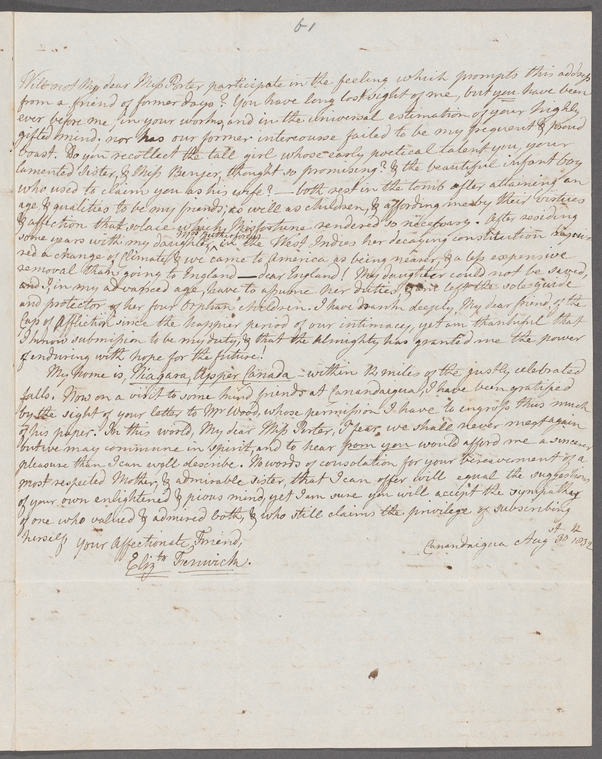 61
Will not My dear Miss Porter participate in the feeling which prompts this address
from a friend of former days? You have long lost sight of me, but you have been
ever before me in your works, and in the universal estimation of your highly
gifted mind; nor has our former intercourse failed to be my frequent & proud
boast. Do you recollect the tall girl whose early poetical talent you, your
lamented Sister, & Miss Benger, thought so promising? & the beautiful infant boy
who used to claim you as his wife? — both rest in the tomb after attaining an
age & qualities to be my friends, as well as children, & affording me by their virtues
& affection that solace my Misfortune rendered so necessary. After residing
some years with my daughter, Mrs Rutherford, in the West Indies her decaying constitution requi-
red a change of Climate, & we came to America as being nearer, & a less expensive
removal than going to England — dear England! My daughter could not be saved,
and I, in my advanced age, have to assume her duties, & am left the sole guide
and protector of her four Orphan Children. I have drunk deeply, My dear friend, of the
Cup of Affliction since the happier period of our intimacy, yet am thankful that
I know submission to be my duty, & that the Almighty has granted me the power
of enduring with hope for the future!
My home is, Niagara, Upper Canada — within 12 miles of the justly celebrated
falls. Now on a visit to some kind friends at Canandaigua, I have been gratified
by the sight of your letter to Mr Wood, whose permission I have to engross thus much
of his paper. In this world, My dear Miss Porter, I fear, we shall never meet again
but we may commune in spirit, and to hear from you would afford me a sincerer
pleasure than I can well describe. No words of consolation for your bereavement of a
most respected Mother, & admirable Sister, that I can offer will equal the suggestions
of your own enlightened & pious mind, yet I am sure you will accept the sympathy
of one who valued & admired both, & who still claims the privilege of subscribing
herself Your Affectionate Friend,
Elizth Fenwick.
Canandaigua Aug 30th 1832